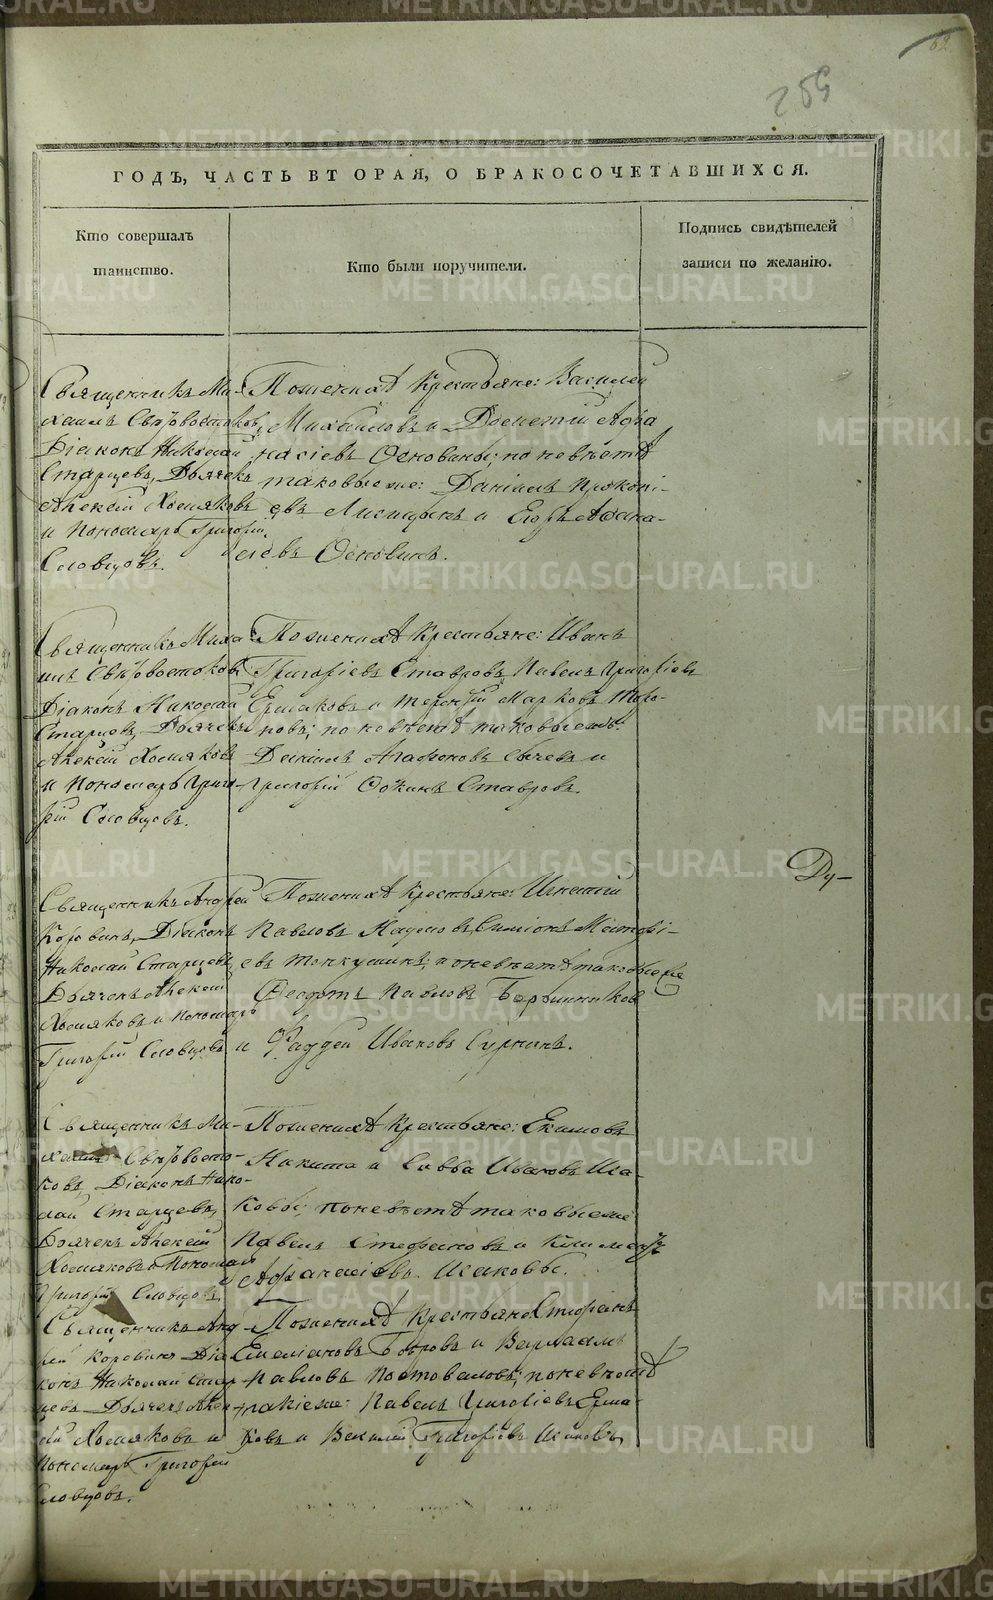 62
259
ГОДЪ, ЧАСТЬ ВТОРАЯ, О БРАКОСОЧЕТАВШИХСЯ.
Кто совершалъ
таинство.
Кто были поручители.
Подпись свидѣтелей
записи по желанію.
Священникъ Ми-
хаилъ Свѣтовостоковъ,
Діаконъ Николай
Старцевъ, Дьячекъ
Алексій Хомяковъ
и Пономарь Григорій
Словцовъ.
По женихѣ Крестьяне: Василій
Михайловъ и Доментій Афа
насіевъ Основины; по невѣстѣ
таковые же: Даніилъ Прокопі-
евъ и Егоръ Афана-
сіевъ Основинъ.
Священникъ Миха
илъ Свѣтовостоковъ
Діаконъ Николай
Старцевъ, Дьячекъ
Алексій Хомяковъ
и Пономарь Григо-
рій Словцовъ.
По женихѣ Крестьяне: Иванъ
Григоріевъ Ставровъ, Павелъ Григоріевъ
Ермаковъ и Терентій Марковъ
по невѣстѣ таковые же:
Даніилъ Агафоновъ Сычевъ и
Григорій Фокинъ Ставровъ.
Священникъ Андрей
Коровинъ, Діаконъ
Николай Старцевъ,
Дьячекъ Алексій
Хомяковъ и Пономарь
Григорій Словцовъ
По женихѣ Крестьяне: Игнатій
Павловъ Симіонъ
евъ по невѣстѣ таковые же
Феодотъ Павловъ
и Фаддей Ивановъ
Ду-
Священникъ Ми-
хаилъ Свѣтовосто-
ковъ, Діаконъ Нико-
лай Старцевъ,
Дьячекъ Алексій
Хомяковъ и Пономарь
Григорій Словцовъ.
По женихѣ Крестьяне: Екимовъ
Никита и Савва Ивановъ Иса-
ковы; по невѣстѣ таковые же
Павелъ Стефановъ и Климентъ
Афанасіевъ Исаковы.
Священникъ Анд
рей Коровинъ Діа
конъ Николай Стар
цевъ Дьячекъ Алек
сій Хомяковъ и
Пономарь Григорій
Словцовъ.
По женихѣ Крестьяне Стефанъ
Емеліановъ Бобровъ и Варлаамъ
Павловъ Постоваловъ; по невѣстѣ
такіе же: Павелъ Григоріевъ Ерма-
ковъ и Василій Григоріевъ Исаковъ
METRIKI.GASO-URAL.RU